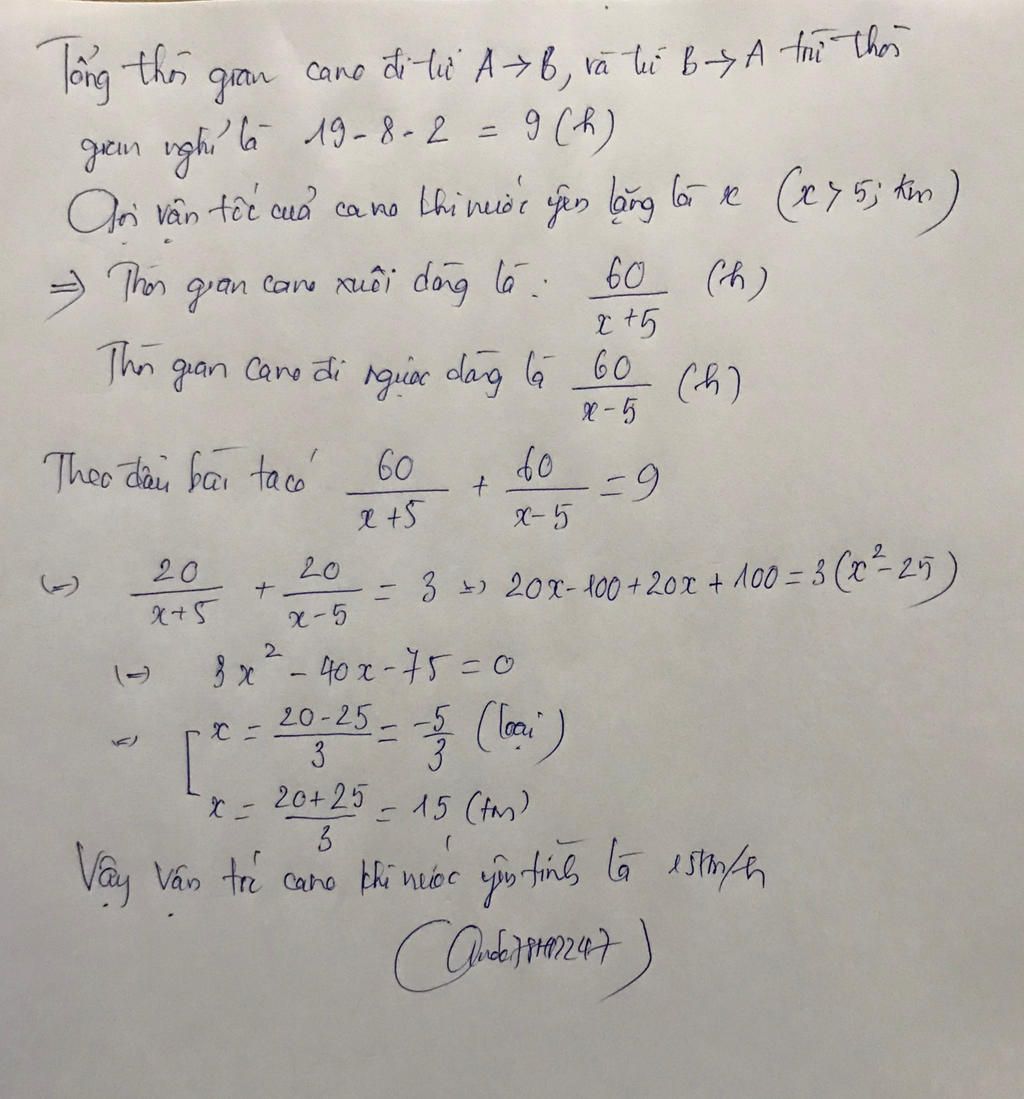 Tổng thời gian cano đi từ A → B, và từ B → A trừ thời
gian nghỉ là 19 - 8 - 2 = 9 (h)
Gọi vận tốc của cano khi nước yên lặng là x (x > 5; km)
⇒ Thời gian cano xuôi dòng là : 60/(x+5) (h)
Thời gian cano đi ngược dòng là 60/(x-5) (h)
Theo đầu bài ta có 60/(x+5) + 60/(x-5) = 9
(=) 20/(x+5) + 20/(x-5) = 3 => 20x - 100 + 20x + 100 = 3(x² - 25)
(=) 3x² - 40x - 75 = 0
(=) [ x = (20-25)/3 = -5/3 (loại)
x = (20+25)/3 = 15 (tm)
Vậy vận tốc cano khi nước yên tĩnh là 15km/h